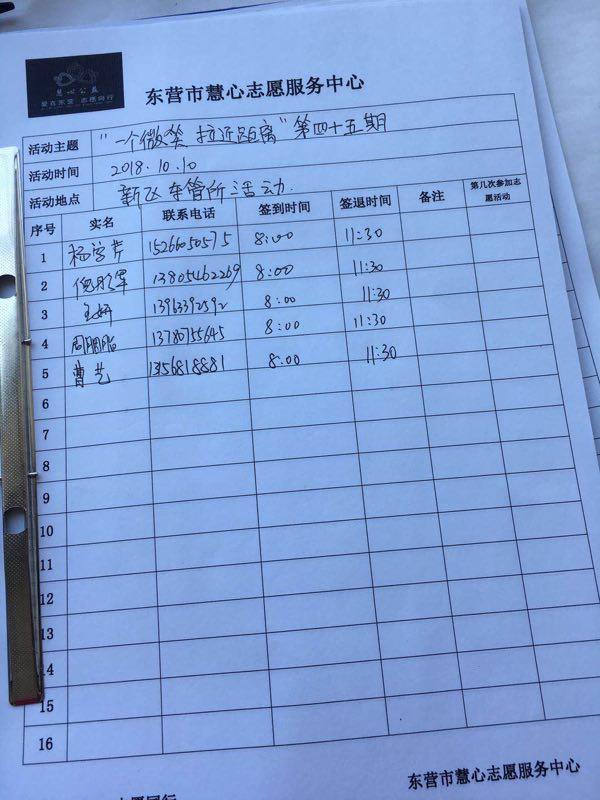 慧心公益
爱在东营 志愿同行
东营市慧心志愿服务中心
活动主题 "一个微笑 拉近距离"第四十五期
活动时间 2018.10.10
活动地点 新区车管所活动.
序号 实名 联系电话 签到时间 签退时间 备注 第几次参加志愿活动
1 15266050575 8:00 11:30
2 13805462269 8:00 11:30
3 王妍 13963392592 8:00 11:30
4 周胭脂 13780755645 8:00 11:30
5 曹艺 13156818881 8:00 11:30
6
7
8
9
10
11
12
13
14
15
16
东营市慧心志愿服务中心
志愿同行